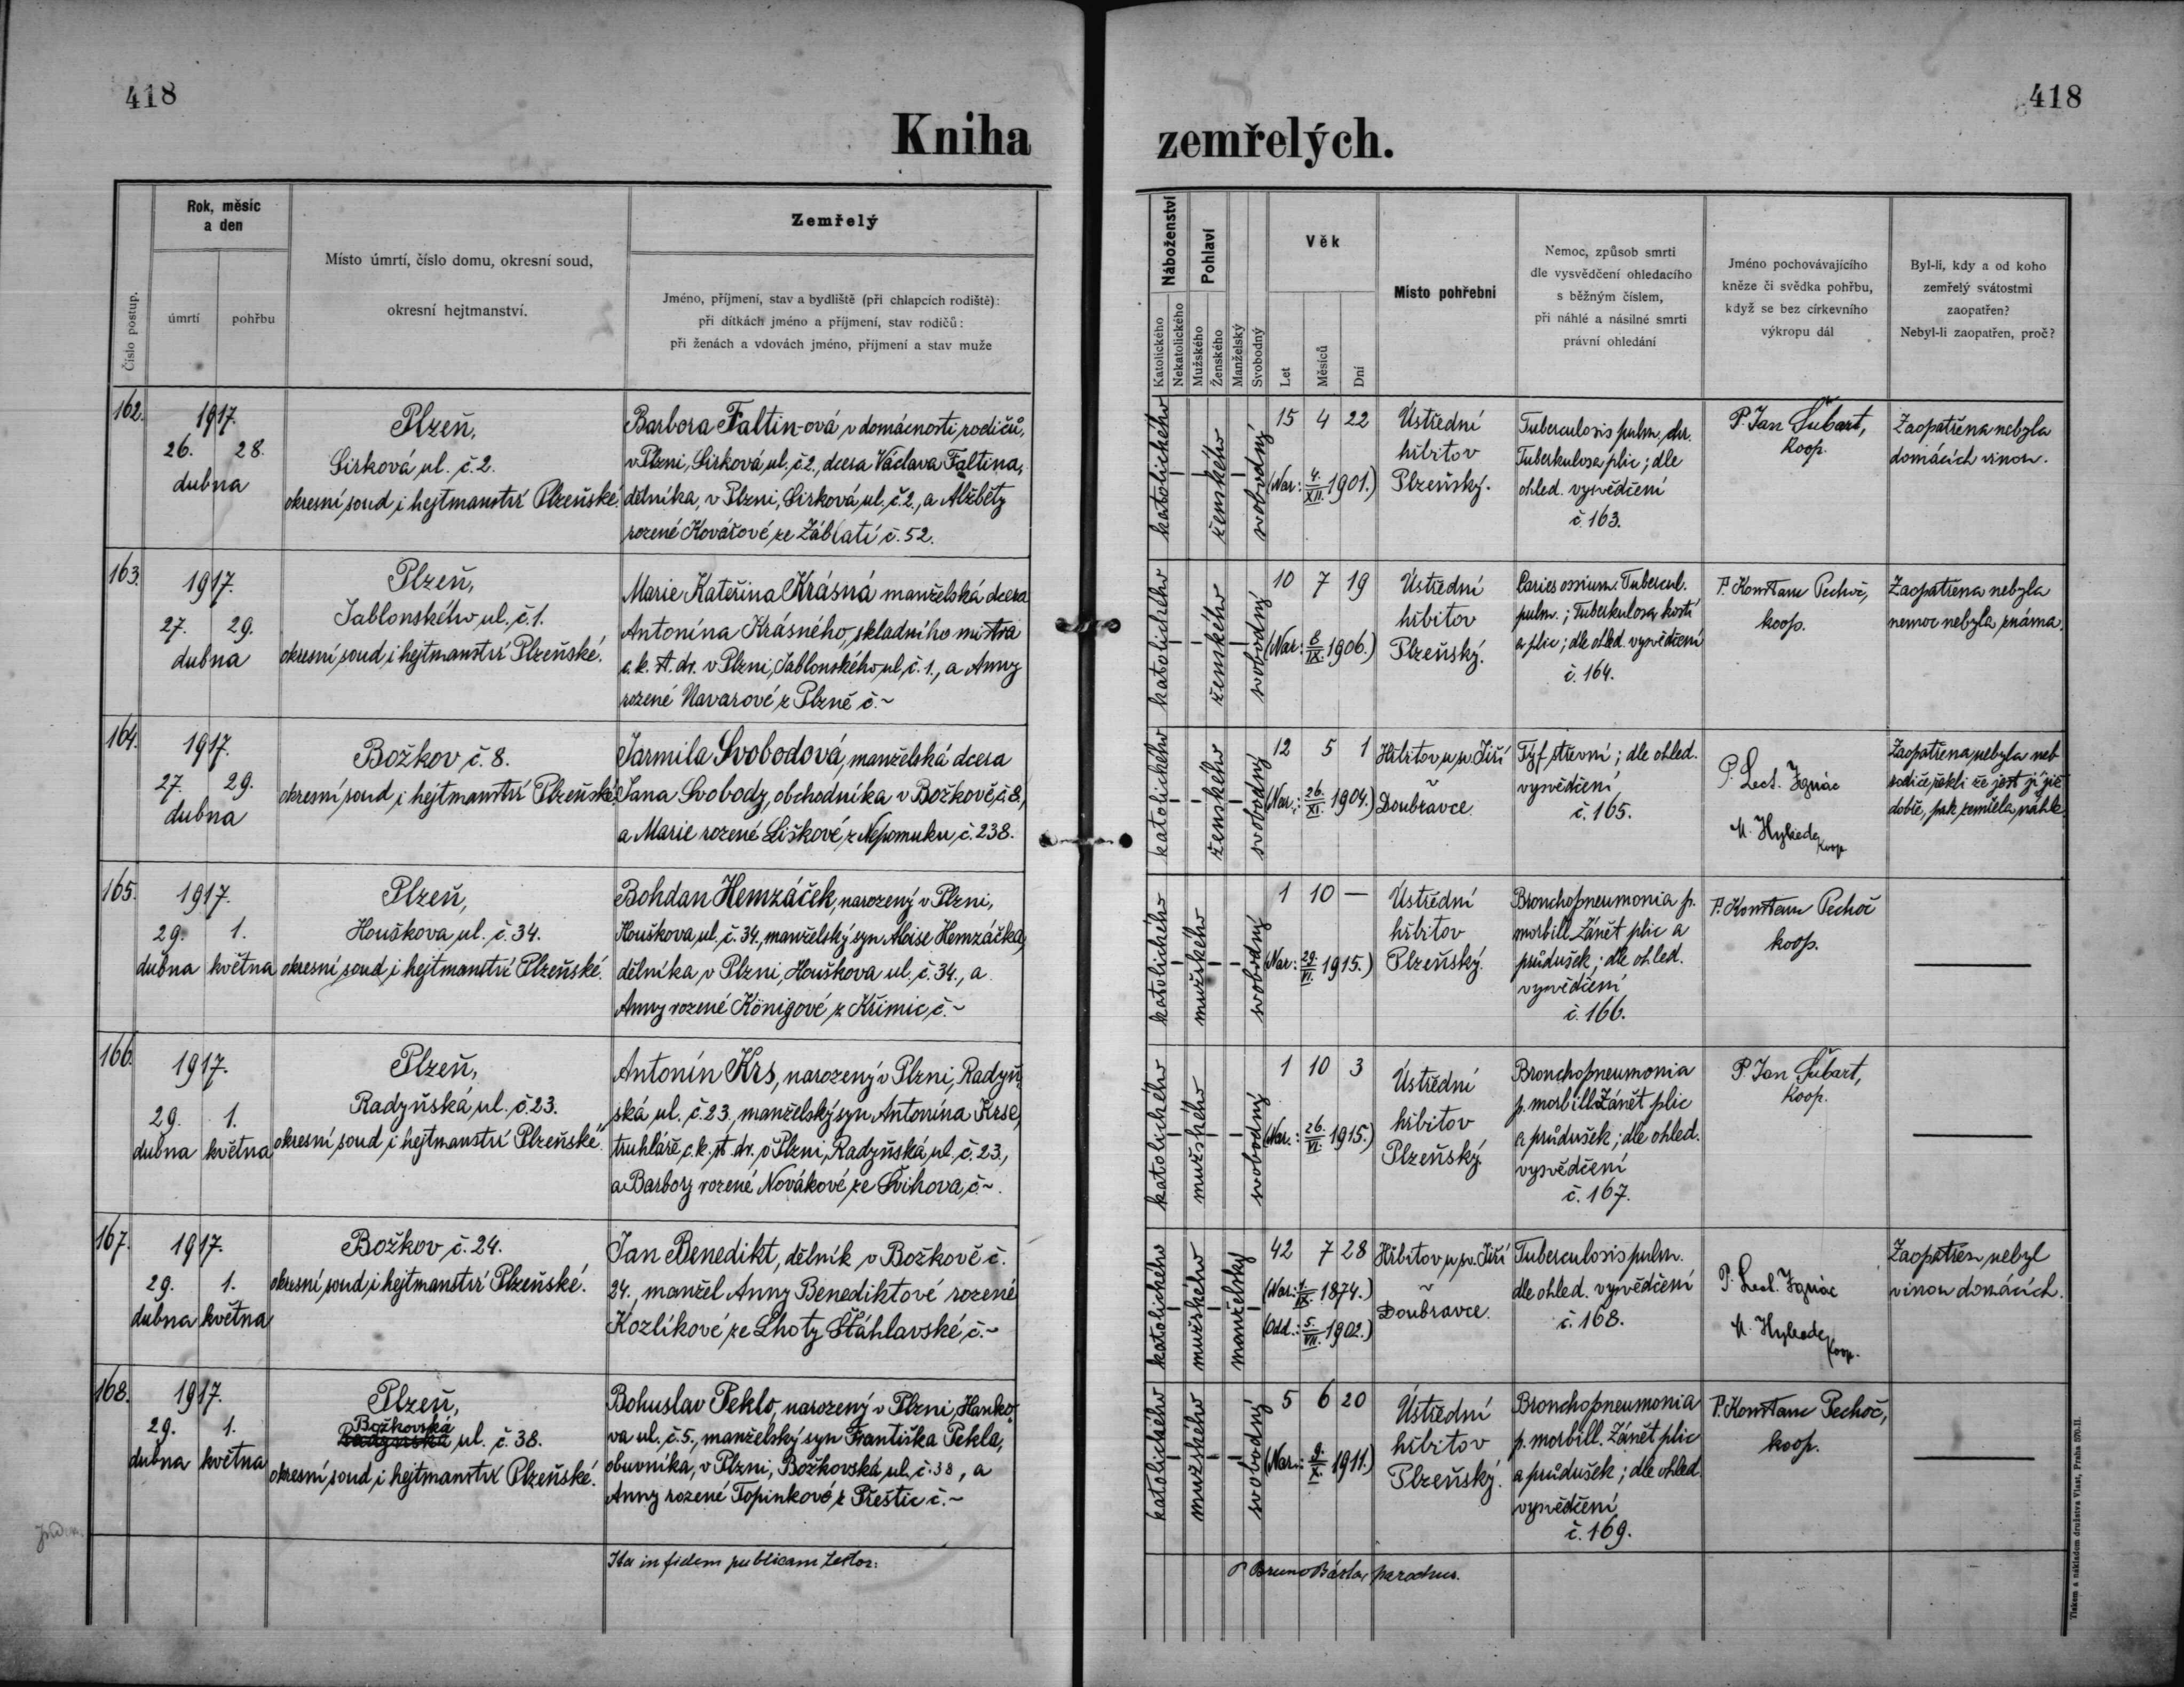 418
418
Kniha zemřelých.
Číslo postup.
Rok, měsíc
a den
úmrtí
pohřbu
Místo úmrtí, číslo domu, okresní soud,
okresní hejtmanství.
Zemřelý
Jméno, příjmení, stav a bydliště (při chlapcích rodiště):
při dítkách jméno a příjmení, stav rodičů:
při ženách a vdovách jméno, příjmení a stav muže
Náboženství
Katolického
Nekatolického
Pohlaví
Mužského
Ženského
Manželský
Svobodný
Věk
Let
Měsíců
Dní
Místo pohřební
Nemoc, způsob smrti
dle vysvědčení ohledacího
s běžným číslem,
při náhlé a násilné smrti
právní ohledání
Jméno pochovávajícího
kněze či svědka pohřbu,
když se bez církevního
výkropu dál
Byl-li, kdy a od koho
zemřelý svátostmi
zaopatřen?
Nebyl-li zaopatřen, proč?
162.
1917.
26. 28.
dubna
Plzeň,
Sirková ul. č. 2.
okresní soud i hejtmanství Plzeňské.
Barbora Faltin-ová, v domácnosti rodičů,
v Plzni, Sirková ul. č. 2., dcera Václava Faltina,
dělníka, v Plzni, Sirková ul. č. 2., a Alžběty
rozené Kovářové ze Záblatí č. 52.
katolického
ženského
svobodný
15 4 22
(Nar: 4./XII. 1901.)
Ústřední
hřbitov
Plzeňský.
Tuberculosis pulm. chr.
Tuberkulosa plic; dle
ohled. vysvědčení
č. 163.
P. Jan Šubart,
koop.
Zaopatřena nebyla
domácích vinou.
163.
1917.
27. 29.
dubna
Plzeň,
Jablonského ul. č. 1.
okresní soud i hejtmanství Plzeňské.
Marie Kateřina Krásná manželská dcera
Antonína Krásného, skladního mistra
c. k. st. dr. v Plzni, Jablonského ul. č. 1., a Anny
rozené Navarové z Plzně č. ~
katolického
ženského
svobodný
10 7 19
(Nar: 8./IX. 1906.)
Ústřední
hřbitov
Plzeňský.
Caries ossium. Tubercul.
pulm.; Tuberkulosa kostí
a plic; dle ohled. vysvědčení
č. 164.
P. Konstanc Pechoč,
koop.
Zaopatřena nebyla
nemoc nebyla známa.
164.
1917.
27. 29.
dubna
Božkov č. 8.
okresní soud i hejtmanství Plzeňské.
Jarmila Svobodová, manželská dcera
Jana Svobody, obchodníka v Božkově, č. 8.,
a Marie rozené Liškové z Nepomuku č. 238.
katolického
ženského
svobodný
12 5 1
(Nar.: 26./XI. 1904.)
Hřbitov u sv. Jiří
~
Doubravce.
Tyf střevní; dle ohled.
vysvědčení
č. 165.
P. Lect. Ignác
M. Hybede
koop.
Zaopatřena nebyla neb
rodiče řekli že jest jí již
dobře, pak zemřela náhle.
165.
1917.
29. 1.
dubna května
Plzeň,
Houškova ul. č. 34.
okresní soud i hejtmanství Plzeňské.
Bohdan Hemzáček, narozený v Plzni,
Houškova ul. č. 34., manželský syn Aloise Hemzáčka,
dělníka v Plzni, Houškova ul. č. 34., a
Anny rozené Königové z Křimic č. ~
katolického
mužského
svobodný
1 10 —
(Nar: 29./VI. 1915.)
Ústřední
hřbitov
Plzeňský.
Bronchopneumonia p.
morbill. Zánět plic a
průdušek; dle ohled.
vysvědčení
č. 166.
P. Konstanc Pechoč
koop.
—
166.
1917.
29. 1.
dubna května
Plzeň,
Radyňská ul. č. 23.
okresní soud i hejtmanství Plzeňské.
Antonín Krs, narozený v Plzni, Radyň-
ská ul. č. 23., manželský syn Antonína Krse,
truhláře c. k. st. dr. v Plzni, Radyňská ul. č. 23.,
a Barbory rozené Novákové ze Švihova, č. ~.
katolického
mužského
svobodný
1 10 3
(Nar.: 26./VI. 1915.)
Ústřední
hřbitov
Plzeňský.
Bronchopneumonia
p. morbill. Zánět plic
a průdušek; dle ohled.
vysvědčení
č. 167.
P. Jan Šubart,
koop.
—
167.
1917.
29. 1.
dubna května
Božkov č. 24.
okresní soud i hejtmanství Plzeňské.
Jan Benedikt, dělník v Božkově č.
24., manžel Anny Benediktové rozené
Kozlíkové ze Lhoty Šťáhlavské č. ~
katolického
mužského
manželský
42 7 28
(Nar.: 1./IX. 1874.)
(Odd.: 5./VII. 1902.)
Hřbitov u sv. Jiří
~
Doubravce.
Tuberculosis pulm.
dle ohled. vysvědčení
č. 168.
P. Lect. Ignác
M. Hybede
koop.
Zaopatřen nebyl
vinou domácích.
168.
1917.
29. 1.
dubna května
Plzeň,
Božkovská
Radyňská ul. č. 38.
okresní soud i hejtmanství Plzeňské.
Bohuslav Peklo, narozený v Plzni, Hanko-
va ul. č. 5., manželský syn Františka Pekla,
obuvníka, v Plzni, Božkovská ul. č. 38, a
Anny rozené Topinkové z Přeštic č. ~
katolického
mužského
svobodný
5 6 20
(Nar.: 9./X. 1911.)
Ústřední
hřbitov
Plzeňský.
Bronchopneumonia
p. morbill. Zánět plic
a průdušek; dle ohled.
vysvědčení
č. 169.
P. Konstanc Pechoč,
koop.
—
Ita in fidem publicam testor:
P Bruno Bárta, parochus.
Tiskem a nákladem družstva Vlast, Praha 570-II.